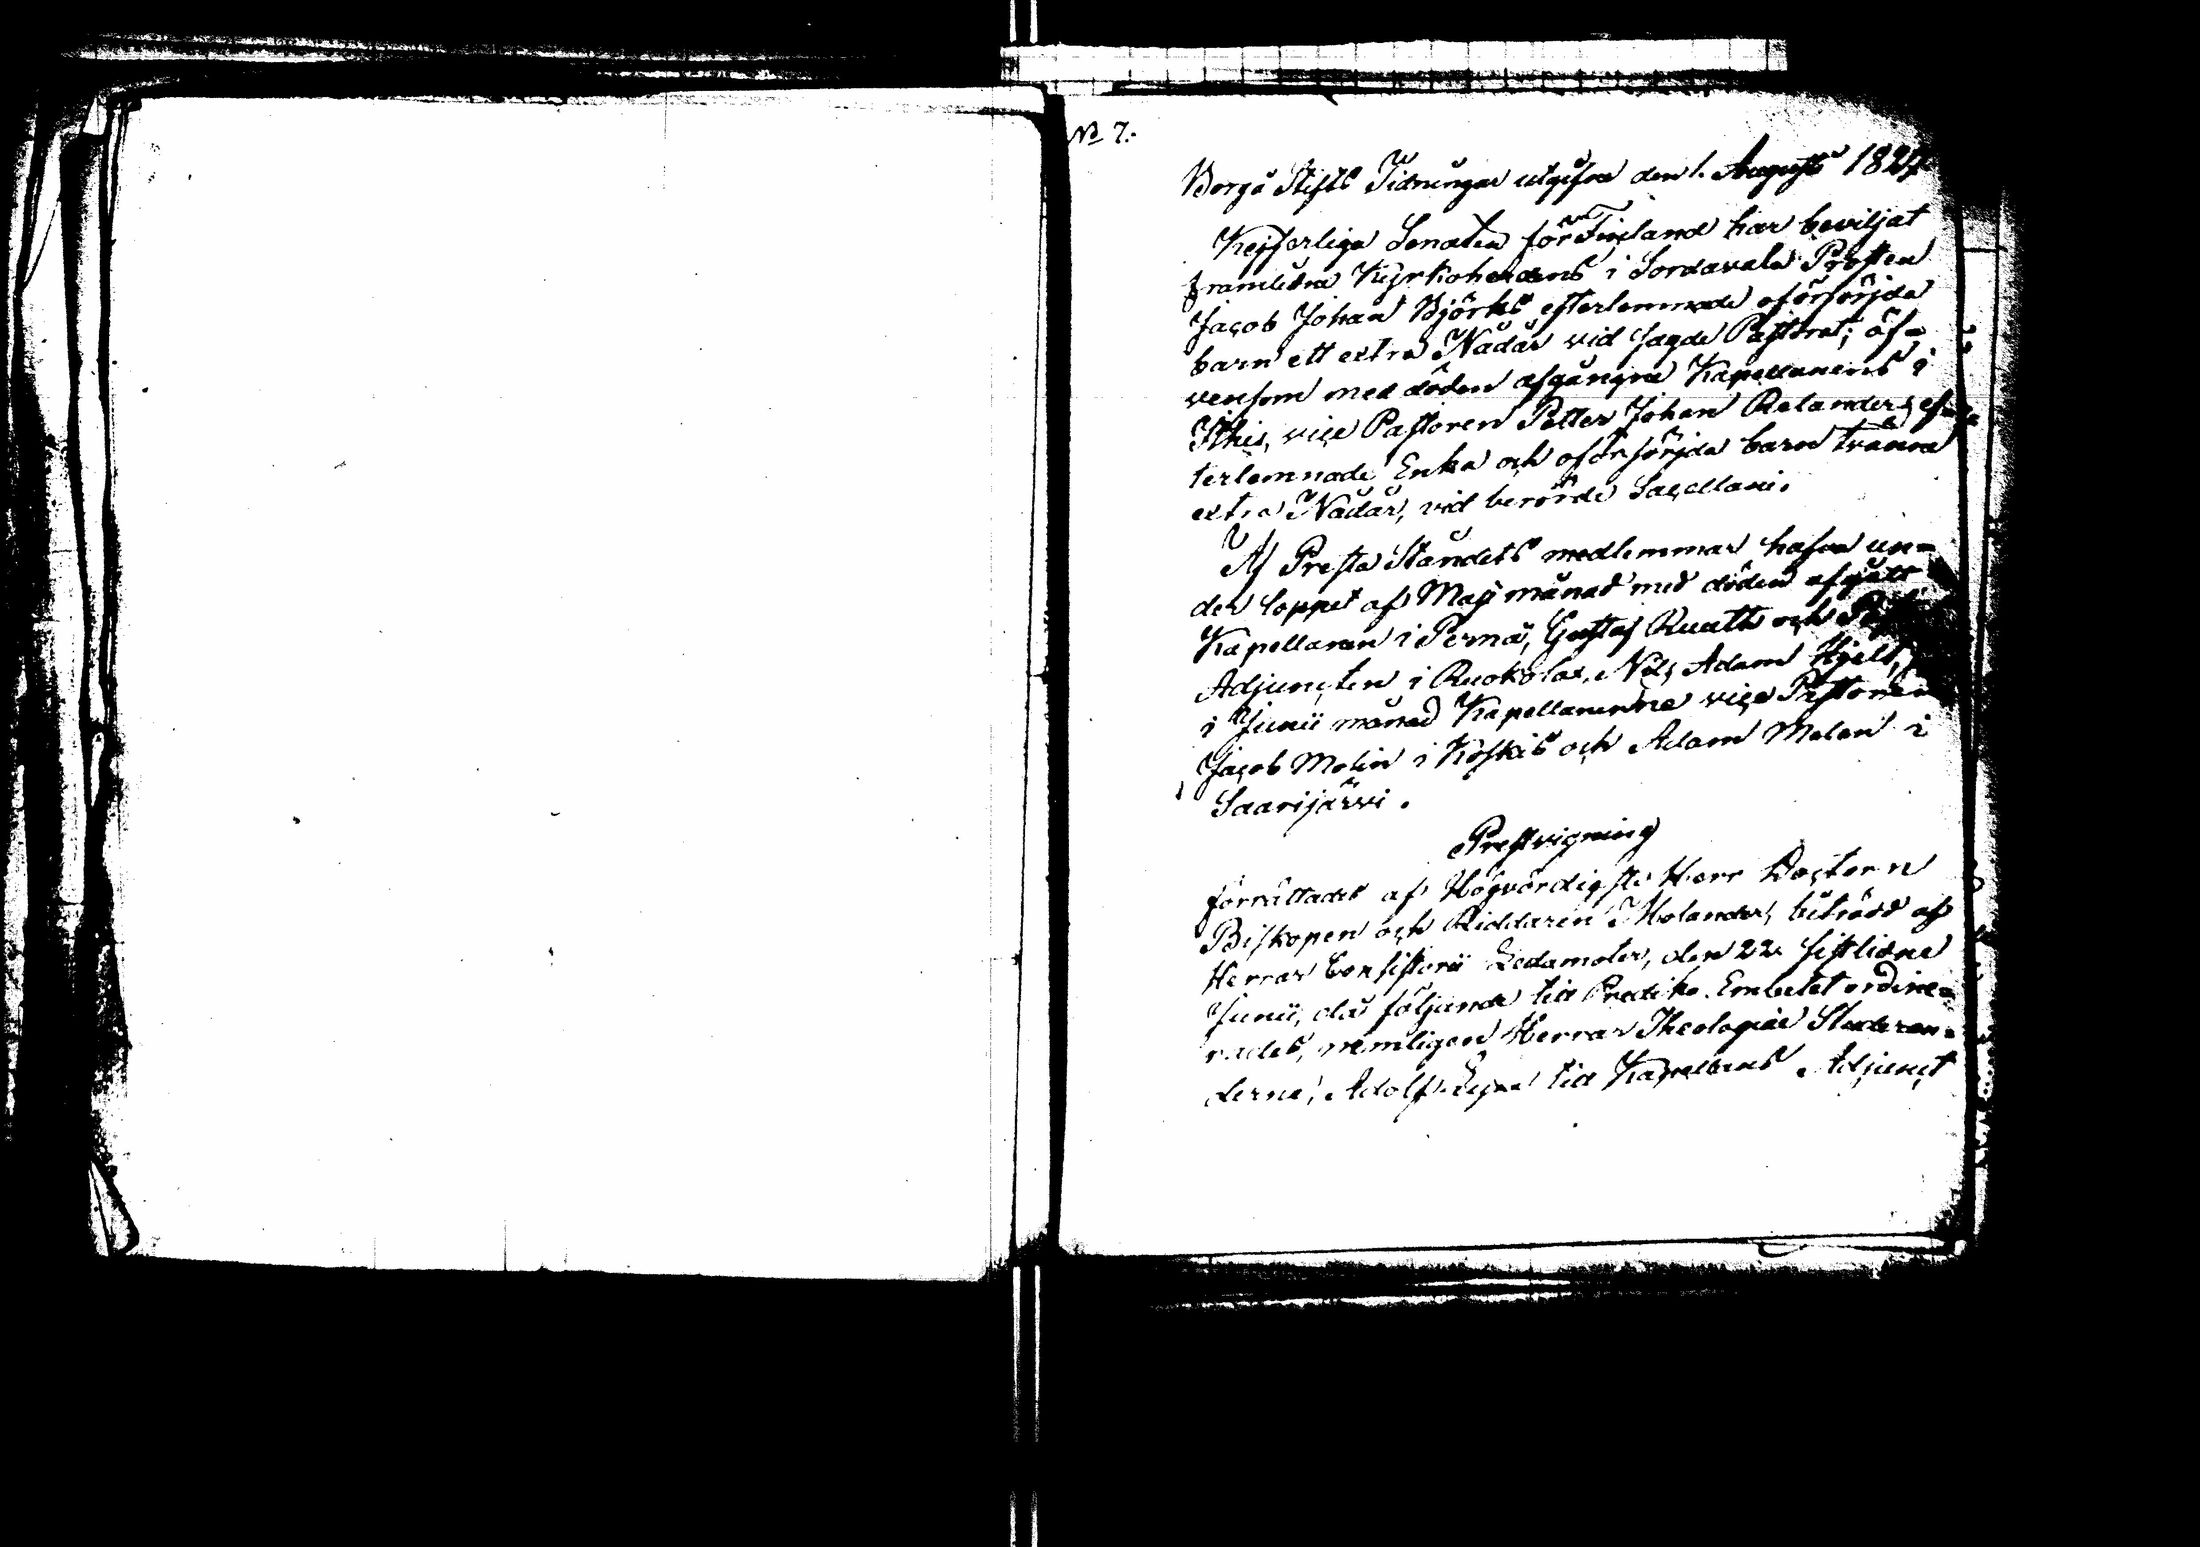 No 7.
Borgå Stifts Tidningar utgifna den 1. Augusti 1827
Kejserliga Senaten för Finland har beviljat
framlidna Kyrkoherdens i Sordavala Prosten
Jacob Johan Björks efterlemnade oförsörjda
barn ett extra Nådår vid sagde Pastorat; äf-
vensom med döden afgångne Kapellanens i
Ithis, vice Pastoren Petter Johan Relanders ef-
terlemnade Enka och oförsörjda barn tvänne
extra Nådår, vid berörde Sacellani.
Af Presta Ståndets medlemmar hafva un-
der loppet af Maji månad med döden afgått
Kapellanen i Pernå, Gustaf Ruuth och
Adjuncten i Ruokolax, Nils Adam Hjelt,
i Junii månad Kapellanerne vice Pastoren
Jacob Molin i Koskis och Adam Melan i
Saarijärvi.
Prestvigning
förrättades af Högvördigste Herr Doctorn
Biskopen och Riddaren Molander, biträdd af
Herrar Consistorii Ledamöter, den 22 sistlidne
Junii, då följande till Prediko-Embetet ordine-
rades, nemligen Herrar Theologiæ Studeran-
derne, Adolf till Kapellans Adjunct